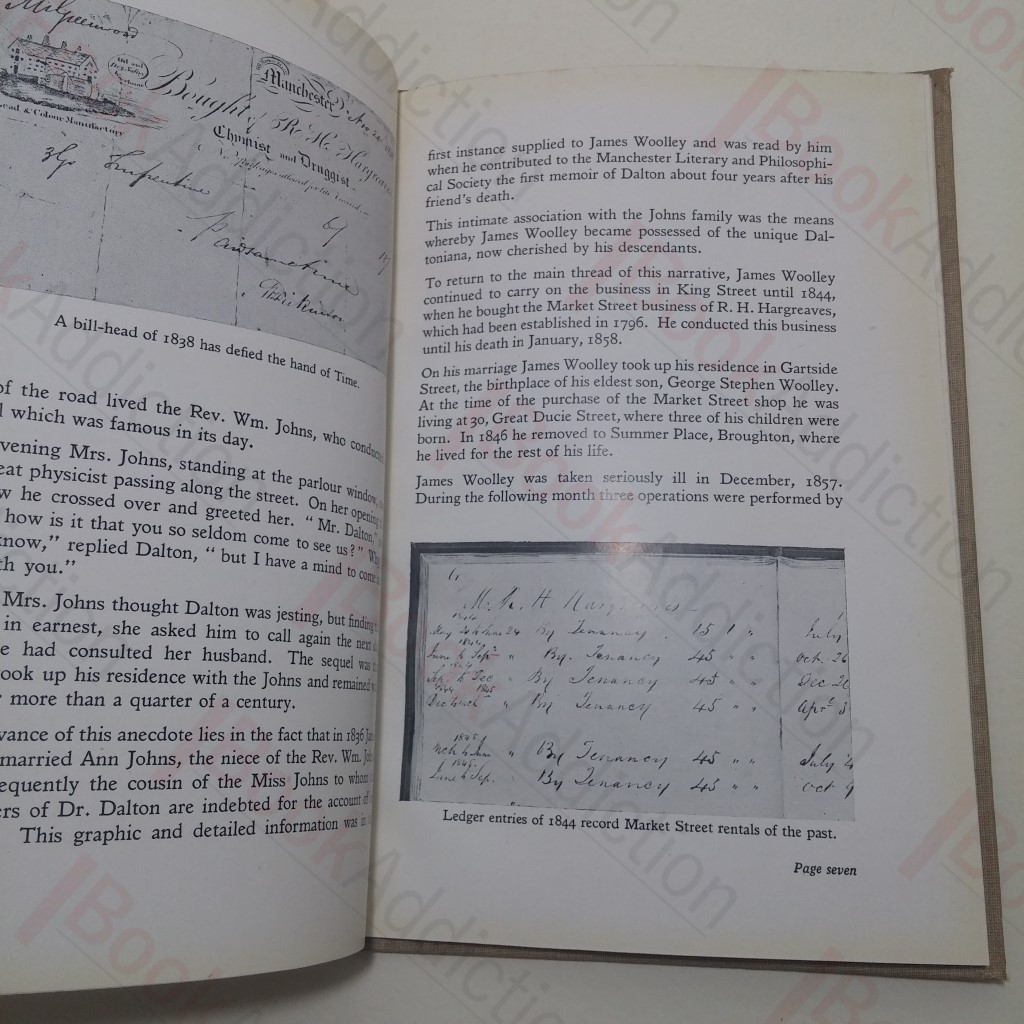 Bought of R. H. Hargreaves
Manchester
Chymist and Druggist
Turpentine
A bill-head of 1838 has defied the hand of Time.
of the road lived the Rev. Wm. Johns, who
which was famous in its day.
vening Mrs. Johns, standing at the parlour window,
eat physicist passing along the street. On her opening
w he crossed over and greeted her. “ Mr. Dalton,”
how is it that you so seldom come to see us?”
know,” replied Dalton, “ but I have a mind to come
th you.”
Mrs. Johns thought Dalton was jesting, but finding
in earnest, she asked him to call again the next
e had consulted her husband. The sequel was
ook up his residence with the Johns and remained
r more than a quarter of a century.
vance of this anecdote lies in the fact that in 1836
married Ann Johns, the niece of the Rev. Wm.
equently the cousin of the Miss Johns to whom
ers of Dr. Dalton are indebted for the account of
This graphic and detailed information was in
first instance supplied to James Woolley and was read by him
when he contributed to the Manchester Literary and Philosophi-
cal Society the first memoir of Dalton about four years after his
friend’s death.
This intimate association with the Johns family was the means
whereby James Woolley became possessed of the unique Dal-
toniana, now cherished by his descendants.
To return to the main thread of this narrative, James Woolley
continued to carry on the business in King Street until 1844,
when he bought the Market Street business of R. H. Hargreaves,
which had been established in 1796. He conducted this business
until his death in January, 1858.
On his marriage James Woolley took up his residence in Gartside
Street, the birthplace of his eldest son, George Stephen Woolley.
At the time of the purchase of the Market Street shop he was
living at 30, Great Ducie Street, where three of his children were
born. In 1846 he removed to Summer Place, Broughton, where
he lived for the rest of his life.
James Woolley was taken seriously ill in December, 1857.
During the following month three operations were performed by
Mr. R. H Hargreaves
1844
May 20 to June 24 By Tenancy 15 1 " July
1844
June to Sepr " By Tenancy 45 " " Oct. 26
1844
Sep. to Dec " By Tenancy 45 " " Dec 20
1844 1845
" By Tenancy 45 " " Apr 3
1845
" By Tenancy 45 " " July
1845
June to Sep. " By Tenancy 45 " " Oct 9
Ledger entries of 1844 record Market Street rentals of the past.
Page seven
BookAddiction